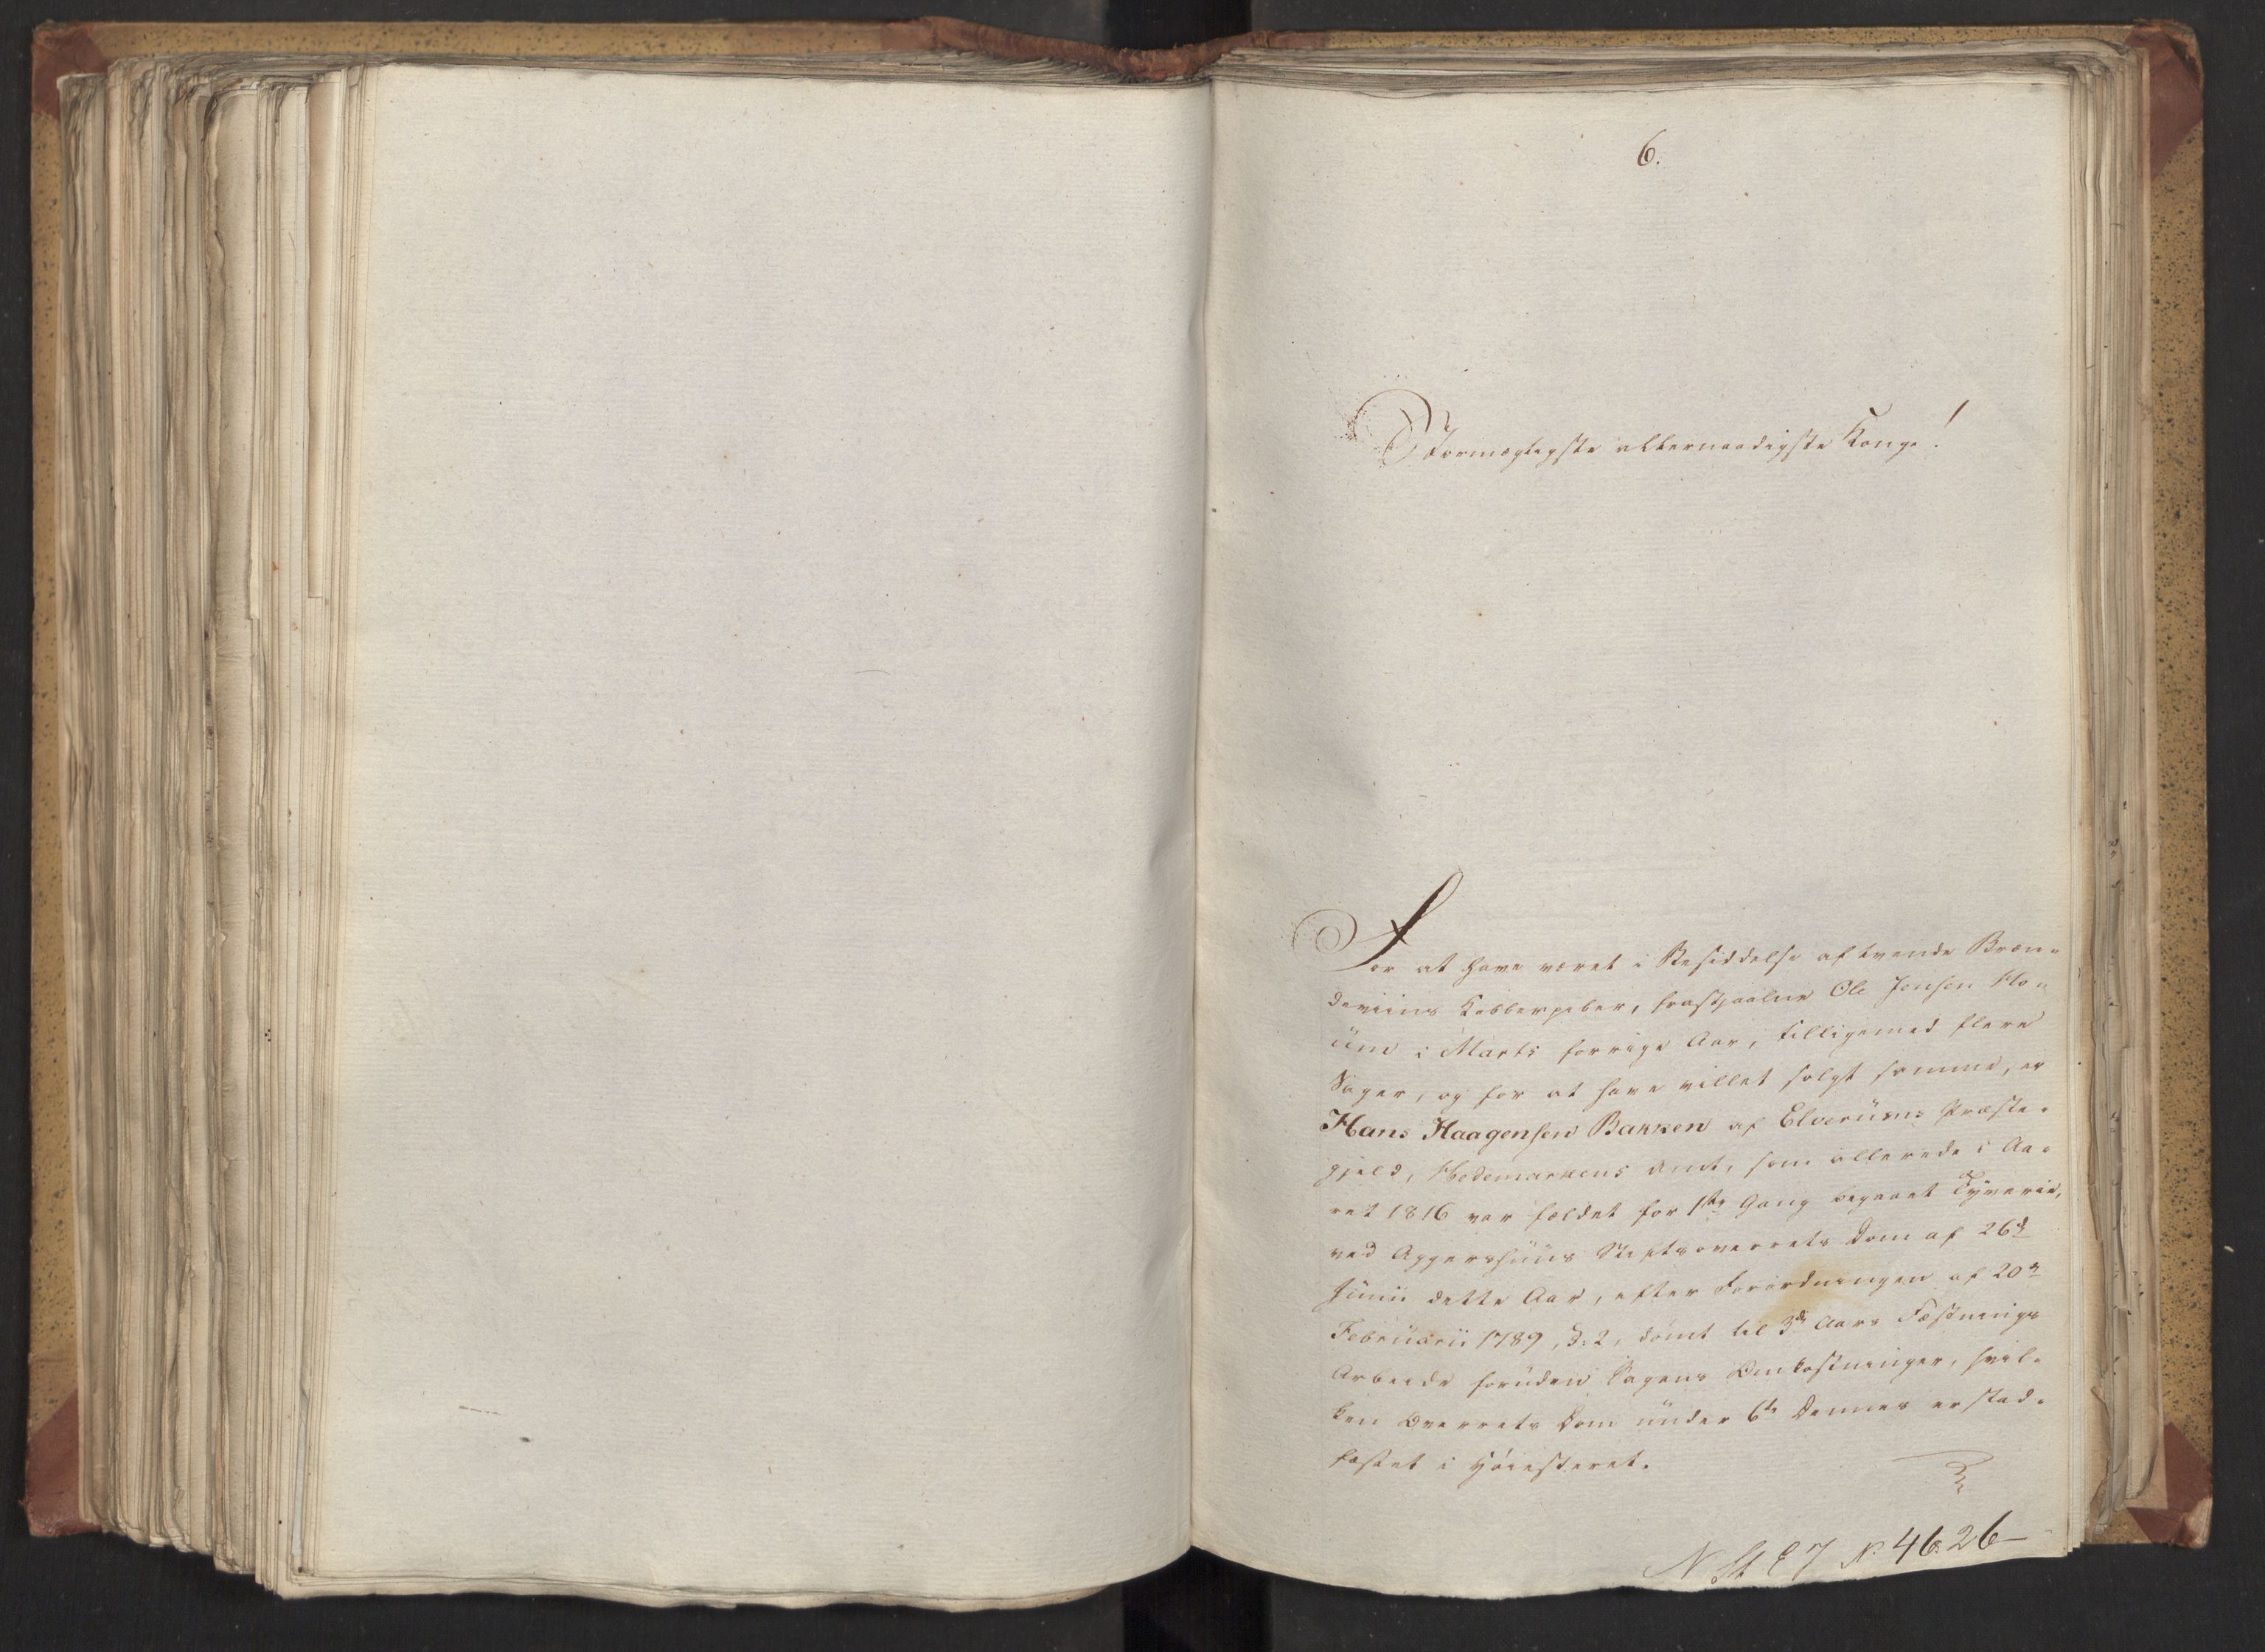 6.
Stormægtigste allernaadigste Konge!
For at have været i Besiddelse af tvende Bræn-
deviins Kobberpiber, frastjaalne Ole Jensen Flo-
üm i Marts forrige Aar, tilligemed flere
Sager, og for at have villet solgt samme, er
Hans Haagensen Bakken af Elverüms Præste-
gjeld, Hedemarkens Amt, som allerede i Aa-
ret 1816 var fældet for 1ste Gang begaaet Tyverie,
ved Aggershuüs Stiftsoverrets Dom af 26de
Junii dette Aar, efter Forordningen af 20de
Februarii 1789, §. 2, dømt til 3de Aars Fæstnings
Arbeide foruden Sagens Omkostninger, hvil-
ken Overrets Dom ünder 6te Dennes er stad-
fæstet i Høiesteret.
N St E 7 No 4626